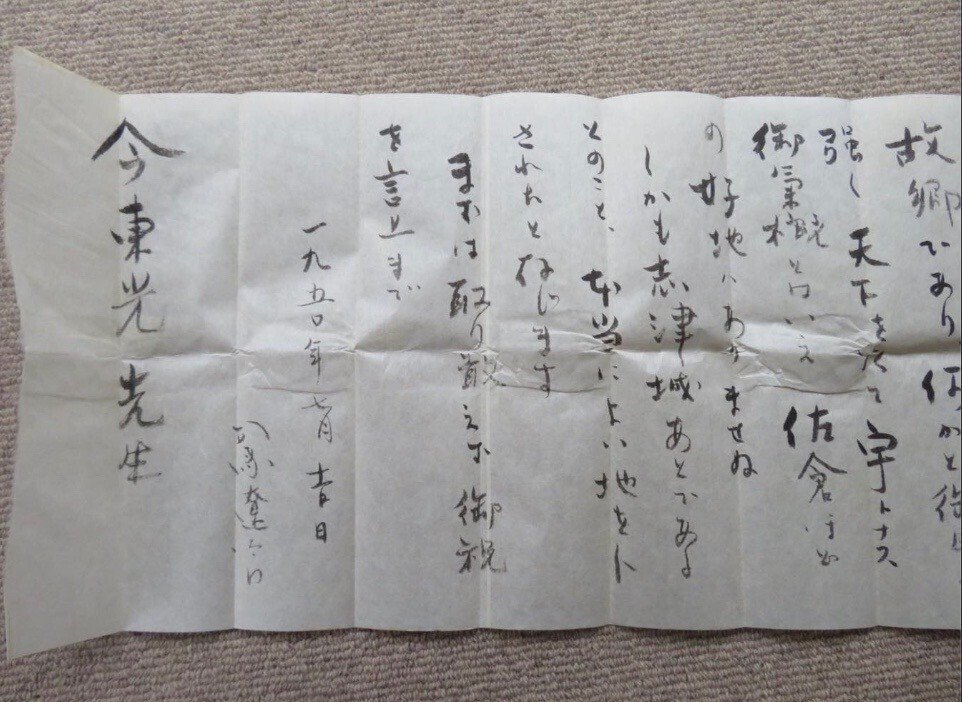 故郷であり、何かと
強く 天下を以て宇トナス
御氣概とはいえ 佐倉ほど
の好地ハありませぬ
しかも志津城あとである
とのこと、本当によい地を卜
されたと存じます
まずは取り敢えず 御祝
を言上まで
一九五〇年七月吉日
司馬遼太郎
今東光先生